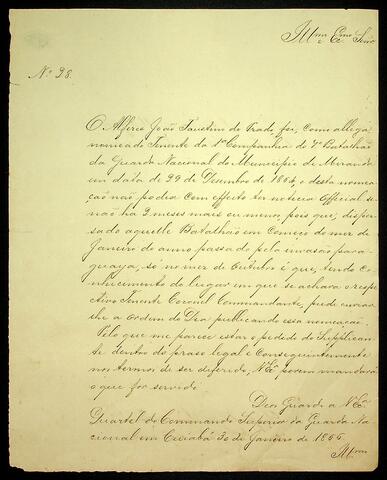 Illmo e Exmo Senr
No 98.
O Alferes João Faustino do Prado foi, como allega,
nomeado Tenente da 1a Companhia do 7o Batalhão
da Guarda Nacional do Municipio de Miranda
em data de 29 de Dezembro de 1864, e desta nomea
ção não podia com effeito ter noticia Official se
não ha 3 mezes mais ou menos, pois que, disper
sado aquelle Batalhão em Começo do mez de
Janeiro do anno passado pela invasão para
guaya, só no mez de Outubro é que, tendo Co
nhecimento do lugar em que se achava o respe
ctivo Tenente Coronel Commandante, pude envi
ar lhe a Ordem do Dia publicando essa nomeação.
Pelo que me parece estar o pedido do Supplican
te dentro do praso legal e Conseguintemente
nos termos de ser deferido, V. Exa porem mandará
o que for servido
Deos Guarde a V. Exa
Quartel do Commando Superior da Guarda Na
cional em Cuiabá 30 de Janeiro de 1866
Illmo